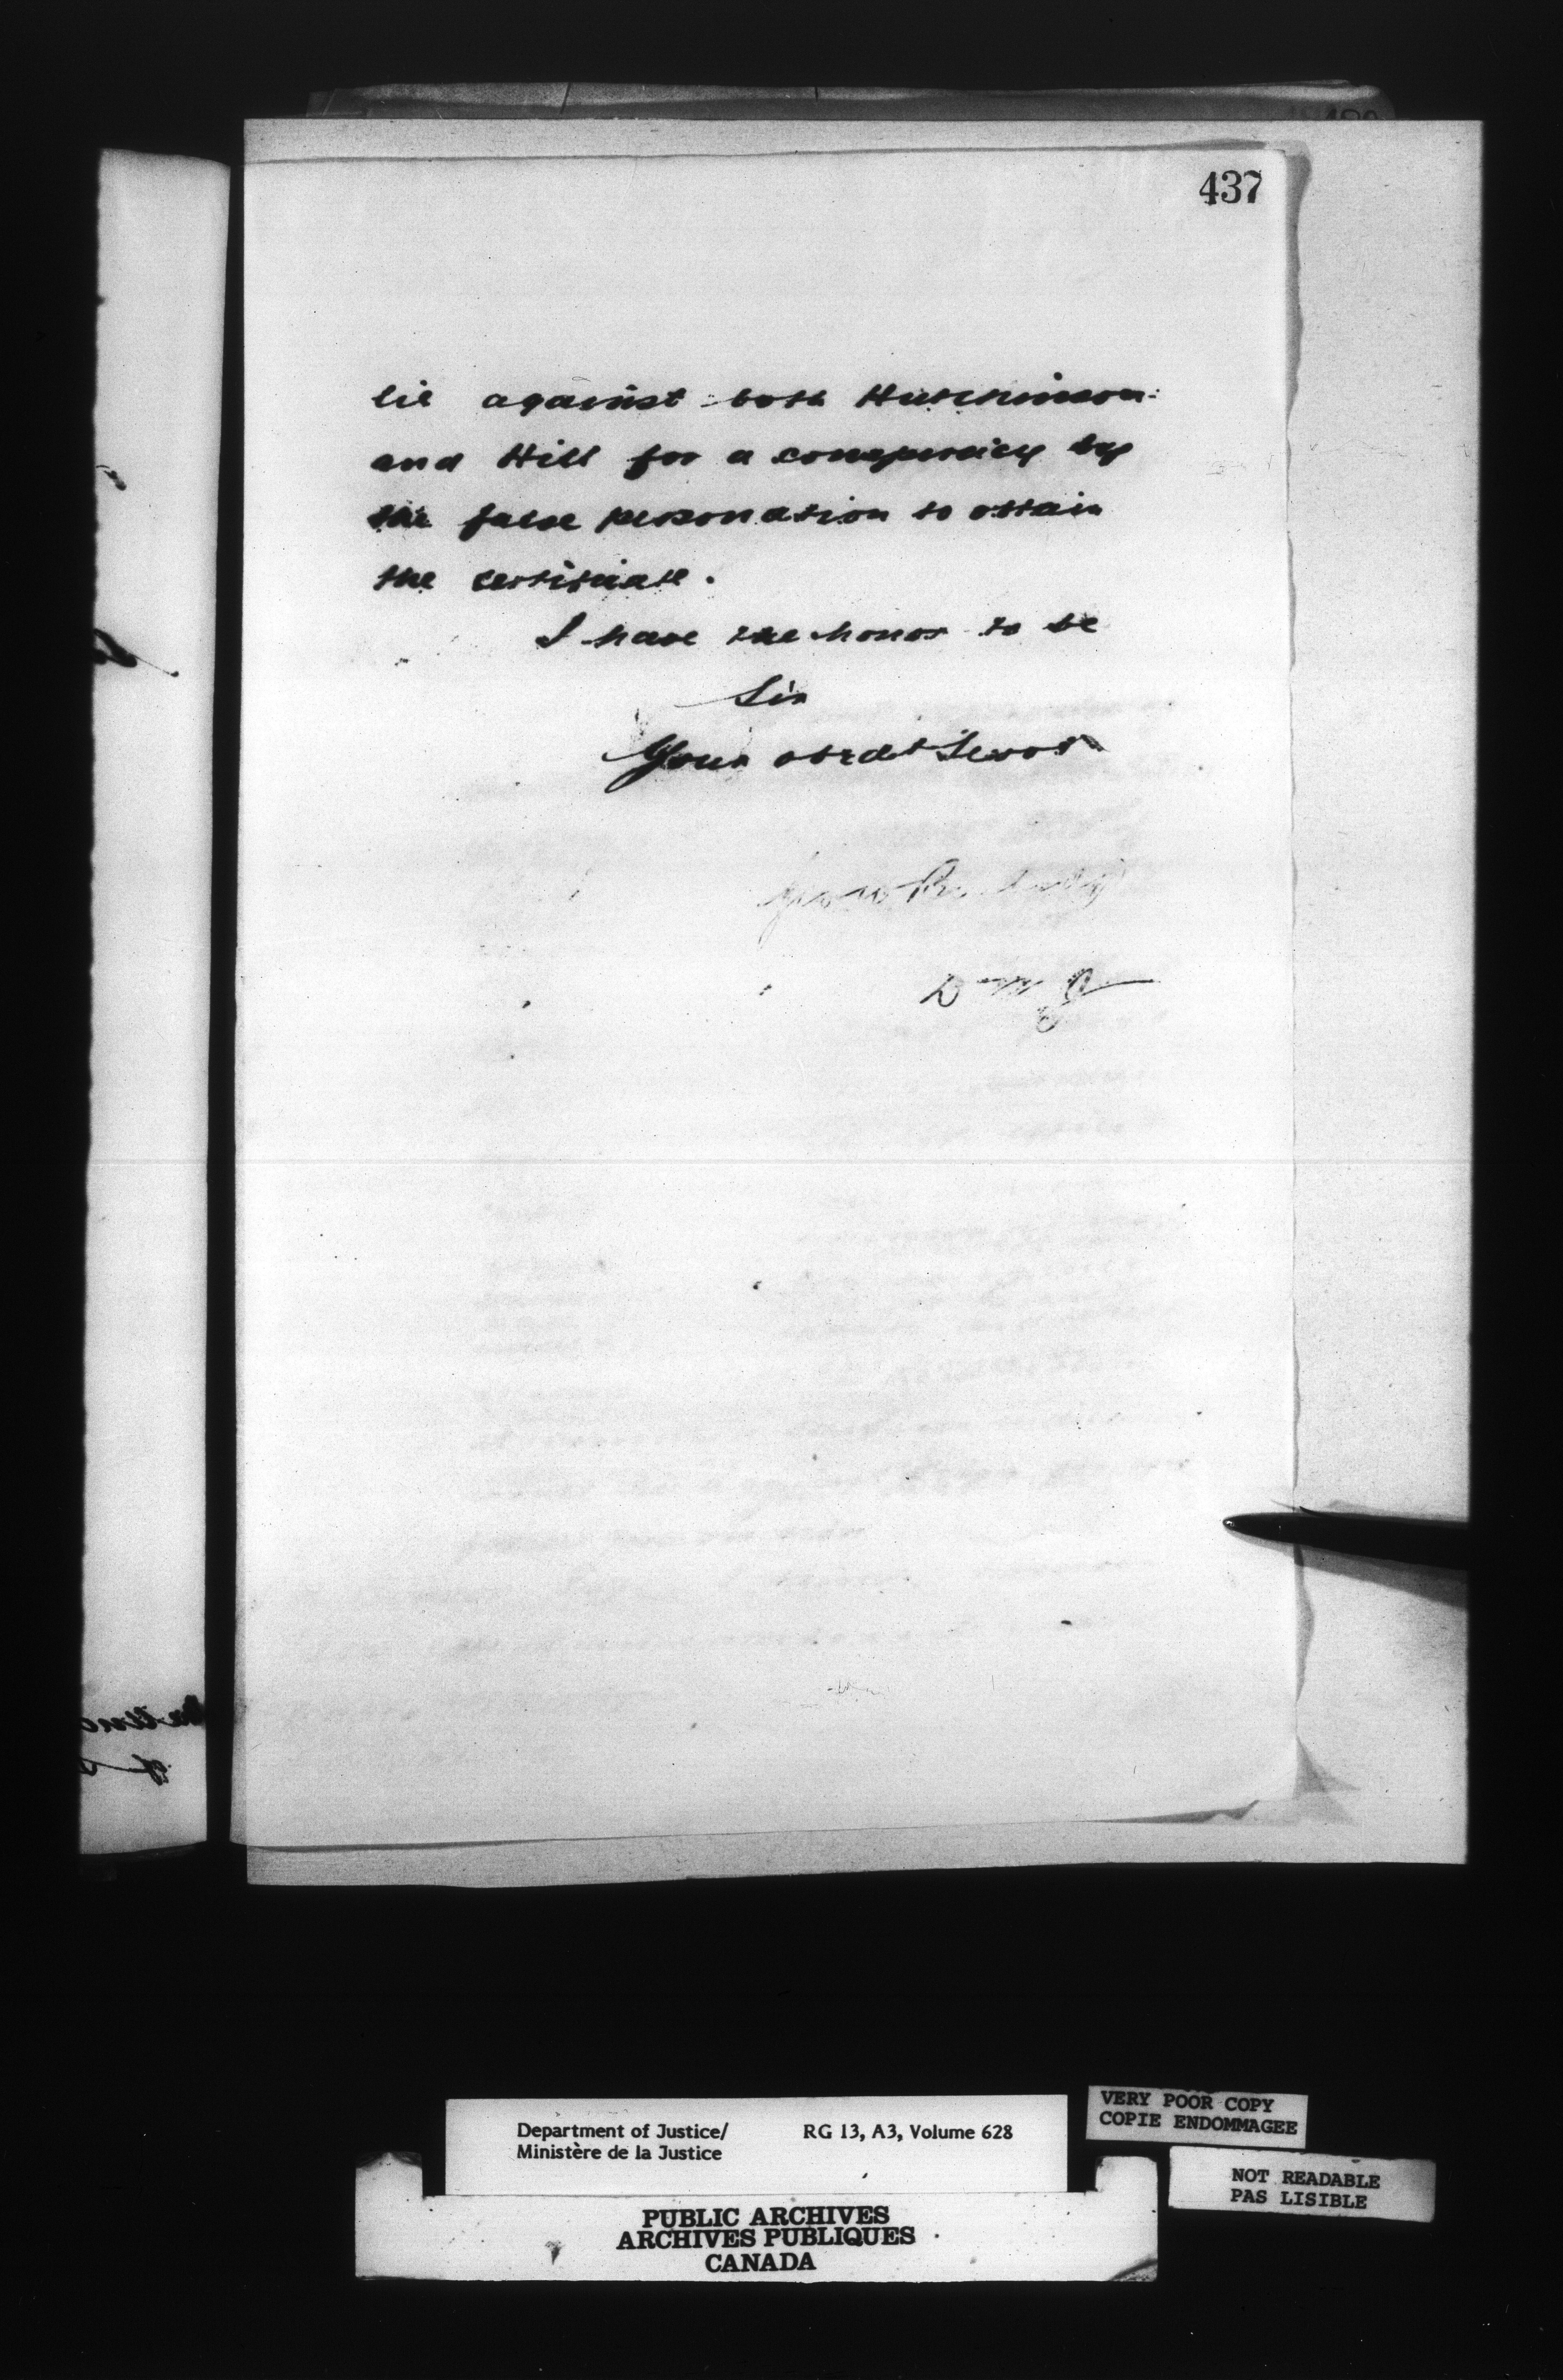 437
lie against both Hutchinson
and Hill for a conspiracy by
the false personation to obtain
the certificate.
I have the honor to be
Sir
Your obedt Servt
Geo W Burbidge
D M J
Department of Justice/ RG 13, A3, Volume 628
Ministère de la Justice
VERY POOR COPY
COPIE ENDOMMAGEE
NOT READABLE
PAS LISIBLE
PUBLIC ARCHIVES
ARCHIVES PUBLIQUES
CANADA